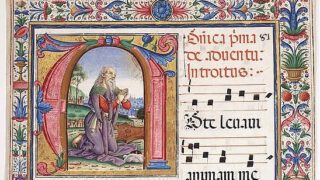 Dñica pĩma
de aduentu
Introitus.
AD te leuaui
animam me